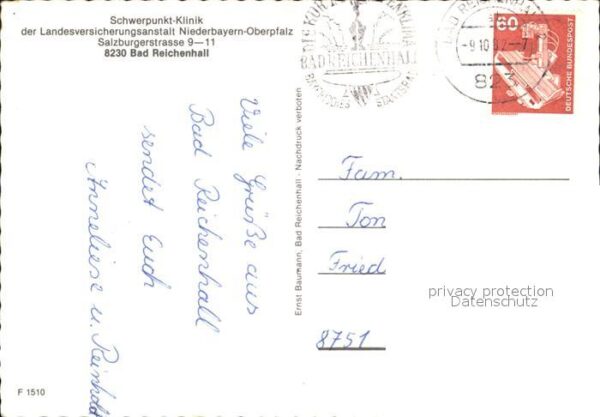 Schwerpunkt-Klinik
der Landesversicherungsanstalt Niederbayern-Oberpfalz
Salzburgerstrasse 9—11
8230 Bad Reichenhall
BAD REICHENHALL
BAYERISCHES STAATSBAD
-9.10.
823
60
DEUTSCHE BUNDESPOST
Viele Grüße aus
Bad Reichenhall
sendet Euch
Anneliese u. Reinhold
Ernst Baumann, Bad Reichenhall - Nachdruck verboten
Fam.
Ton
Fried
8751
privacy protection
Datenschutz
F 1510